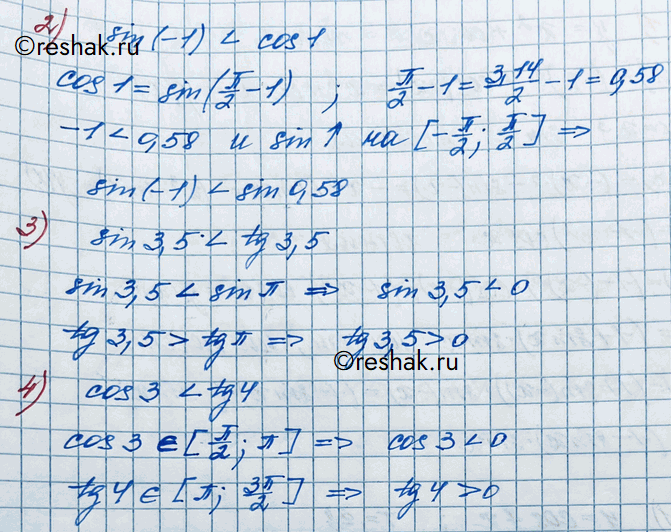 2) sin(-1) < cos1
©reshak.ru
cos1 = sin(π/2 - 1) ; π/2 - 1 = 3,14/2 - 1 = 0,58
-1 < 0,58 и sin↑ на [-π/2; π/2] ⇒
sin(-1) < sin 0,58
3) sin 3,5 < tg 3,5
sin 3,5 < sin π ⇒ sin 3,5 < 0
tg 3,5 > tg π ⇒ tg 3,5 > 0
©reshak.ru
4) cos 3 < tg 4
cos 3 ∈ [π/2; π] ⇒ cos 3 < 0
tg 4 ∈ [π; 3π/2] ⇒ tg 4 > 0